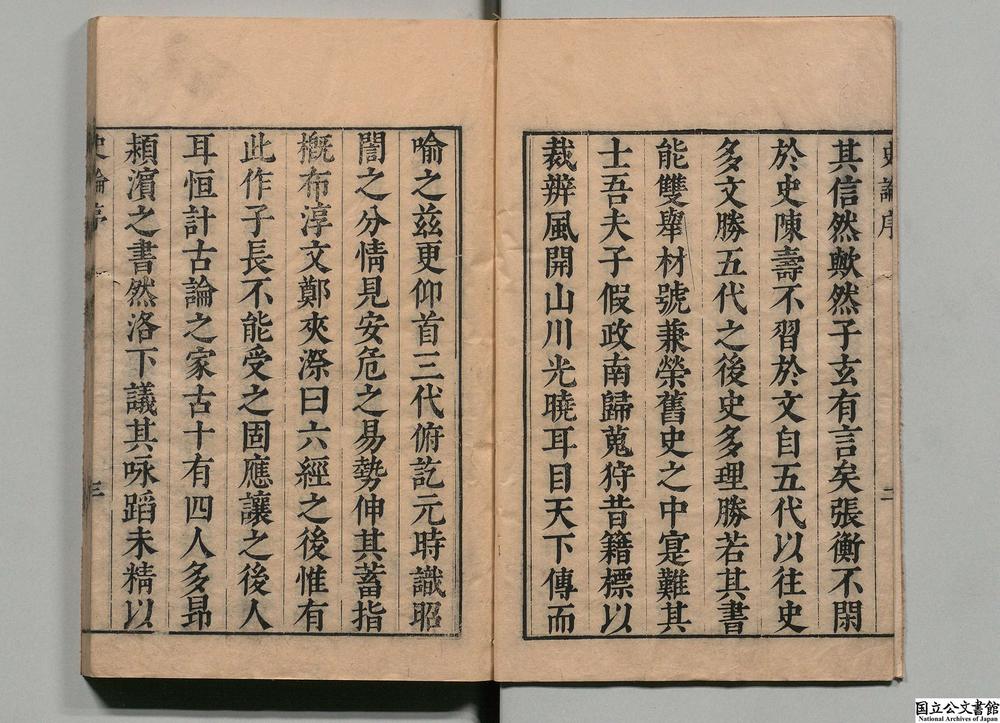 史論序
二
其信然歟然子玄有言矣張衡不閑
於史陳壽不習於文自五代以往史
多文勝五代之後史多理勝若其書
能雙舉材號兼榮舊史之中寔難其
士吾夫子假政南歸蒐狩昔籍標以
裁辨風開山川光曉耳目天下傳而
喻之茲更仰首三代俯訖元時識昭
誾之分情見安危之易勢伸其蓄指
概布淳文鄭夾漈曰六經之後惟有
此作子長不能受之固應讓之後人
耳恒計古論之家古十有四人多昻
潁濵之書然洛下議其咏蹈未精以
史論序
三
国立公文書館
National Archives of Japan